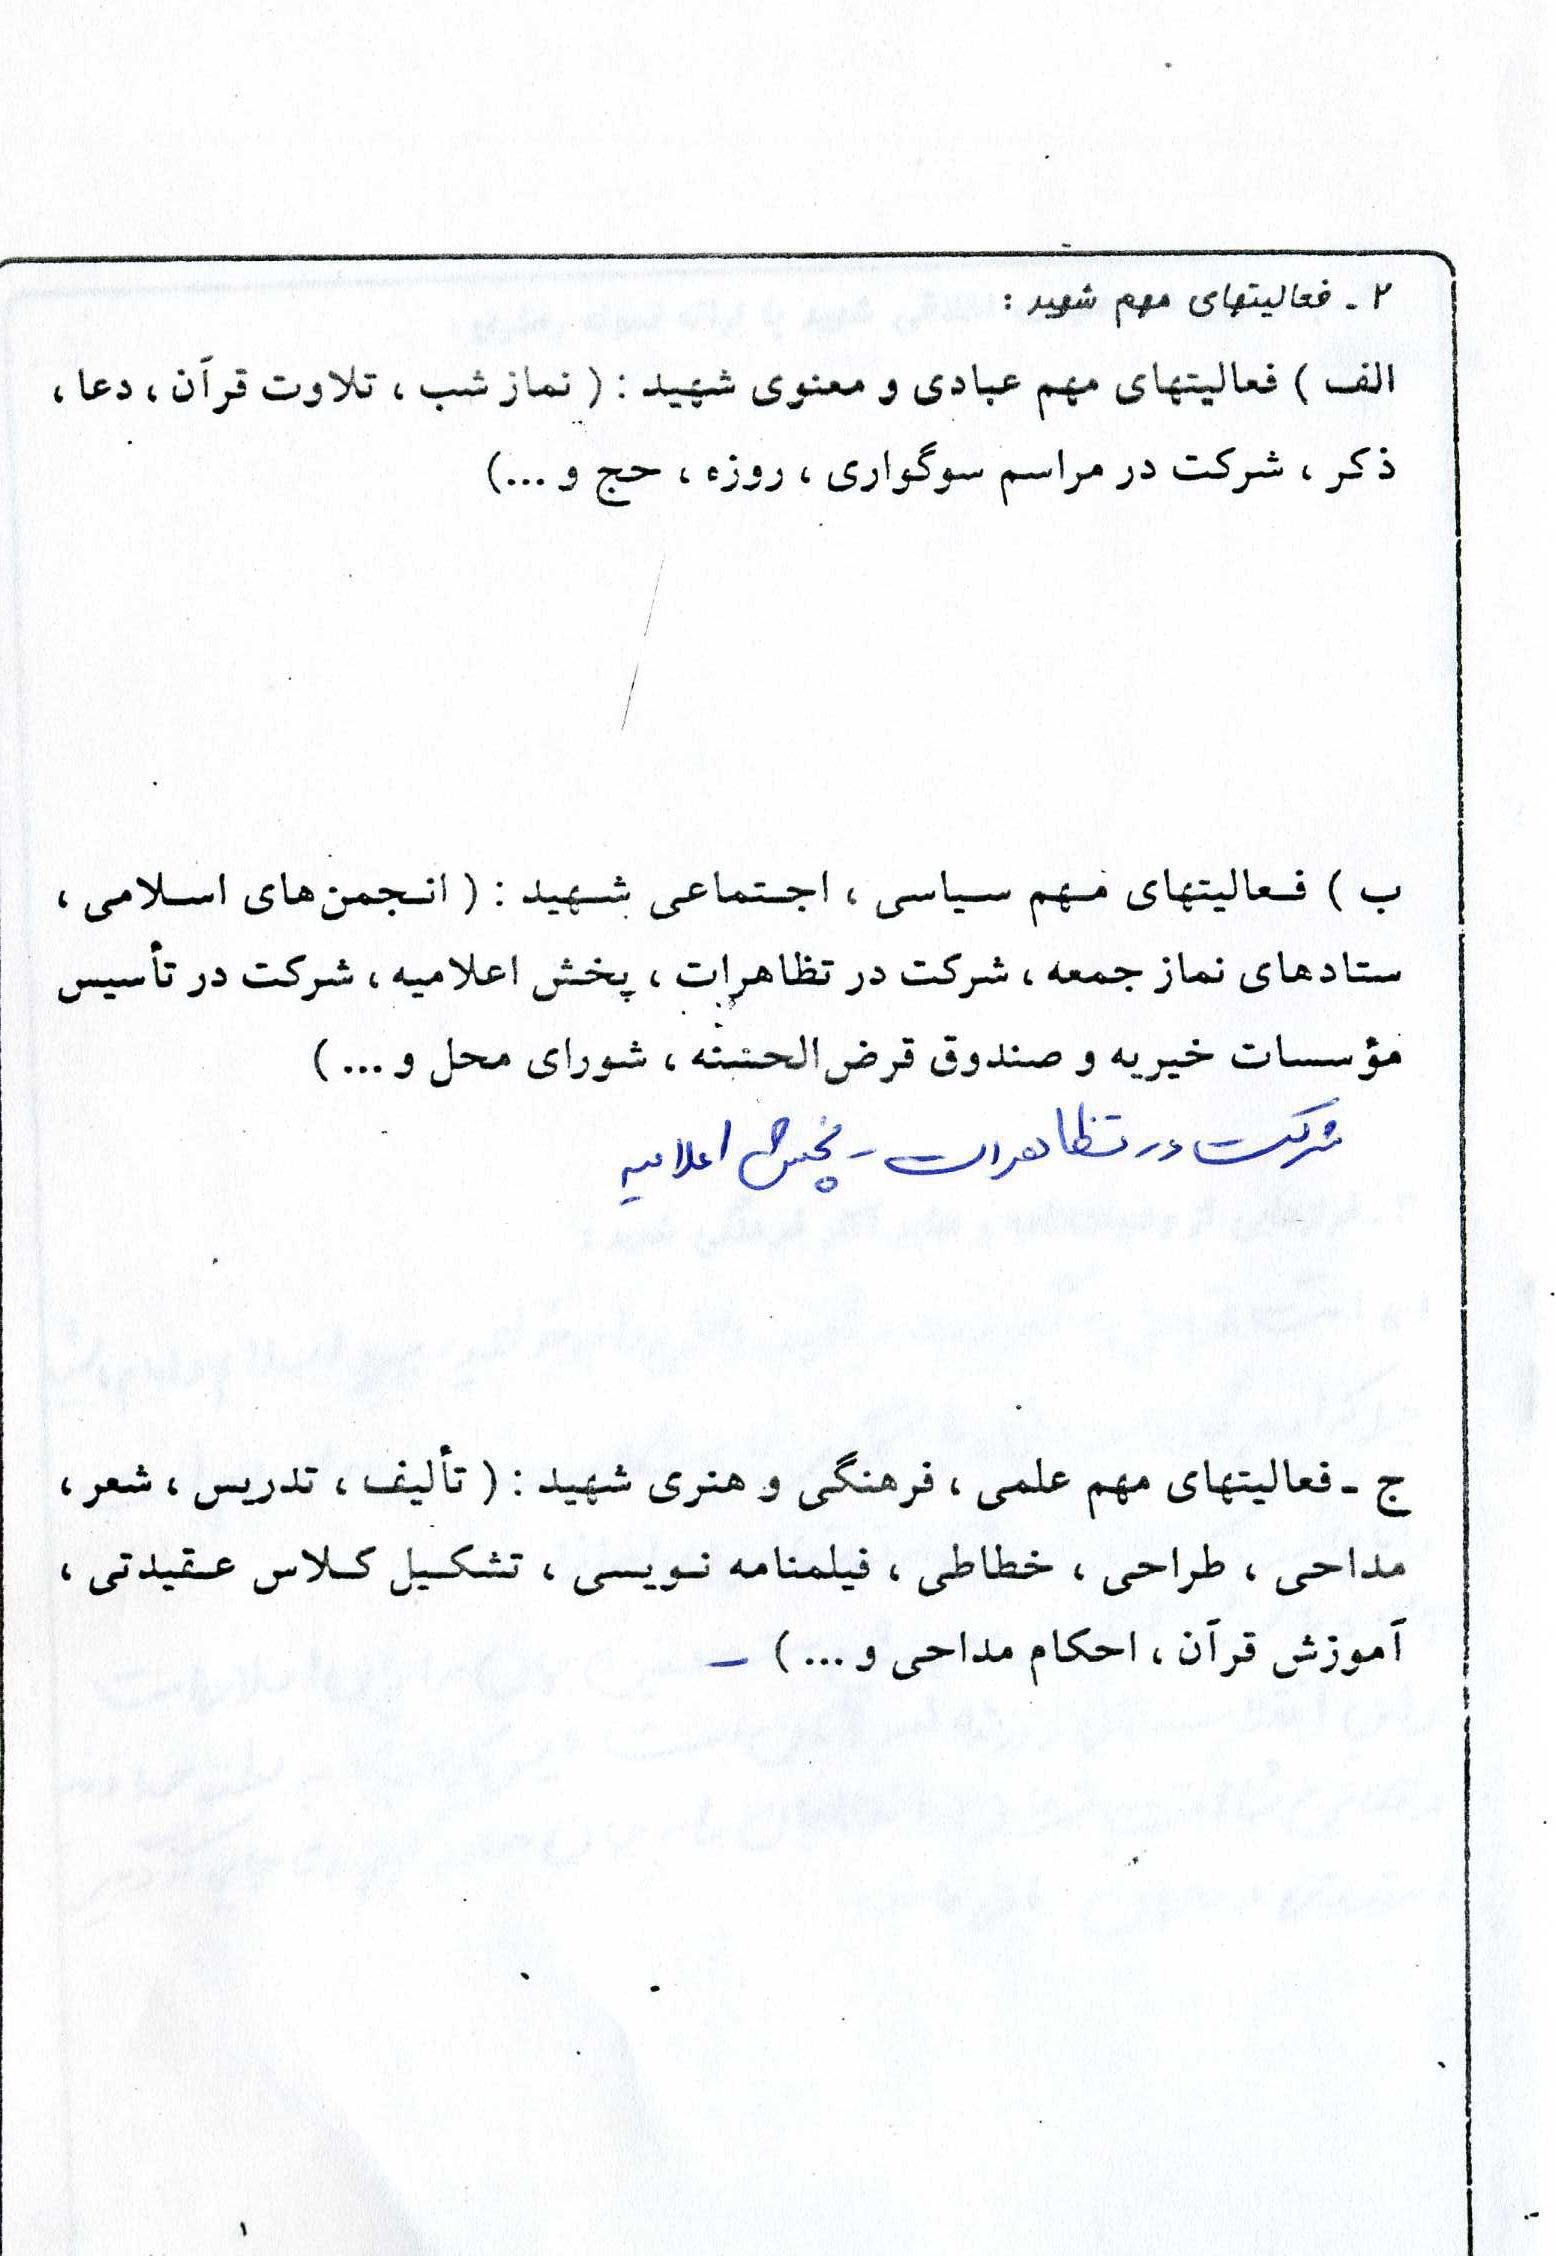 ۲ ـ فعالیتهای مهم شهید :
الف ) فعالیتهای مهم عبادی و معنوی شهید : ( نماز شب ، تلاوت قرآن ، دعا ،
ذکر ، شرکت در مراسم سوگواری ، روزه ، حج و ...)
ب ) فعالیتهای مهم سیاسی ، اجتماعی شهید : ( انجمن‌های اسلامی ،
ستادهای نماز جمعه ، شرکت در تظاهرات ، پخش اعلامیه ، شرکت در تأسیس
مؤسسات خیریه و صندوق قرض‌الحسنه ، شورای محل و ... )
شرکت در تظاهرات - پخش اعلامیه
ج ـ فعالیتهای مهم علمی ، فرهنگی و هنری شهید : ( تألیف ، تدریس ، شعر ،
مداحی ، طراحی ، خطاطی ، فیلمنامه نویسی ، تشکیل کلاس عقیدتی ،
آموزش قرآن ، احکام مداحی و ... ) -